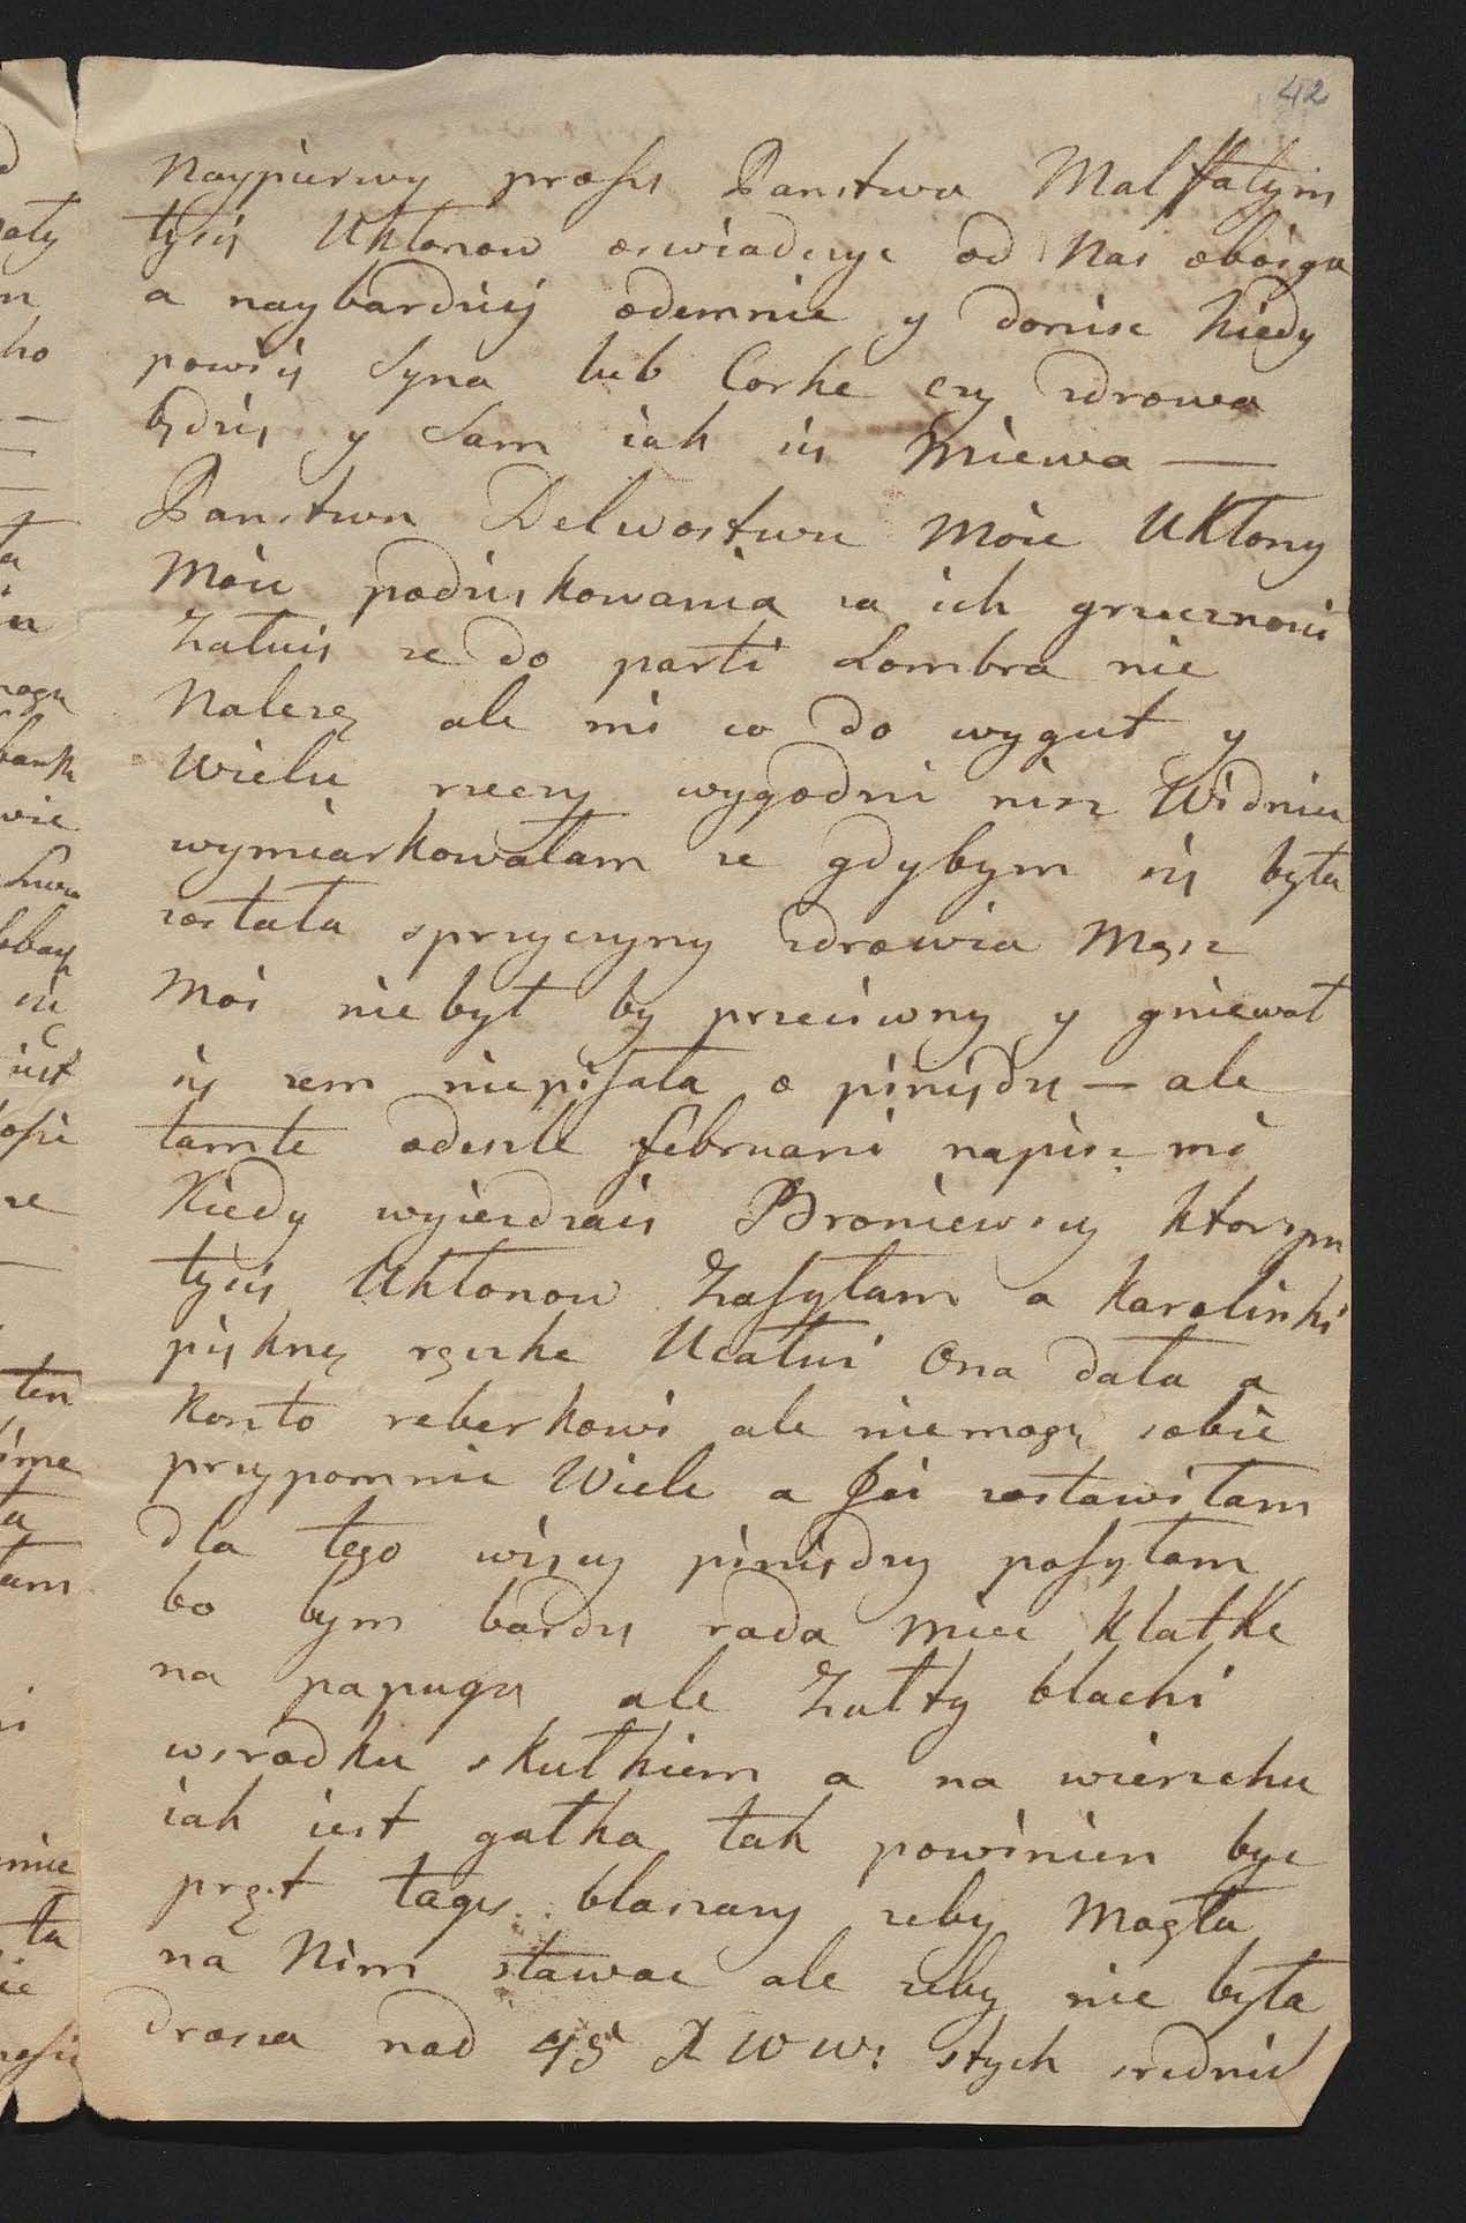 42
Naypierwy prosze Panstwa Malfatym
tysiy Uklonow oswiadczyc od Nas oboiga
a naybardziej odemnie y doniesc kiedy
powiiy Syna lub Corke czy zdrowa
bydziy y Sam iak siy Miewa —
Panstwu Delwostwu Moie Uklony
Moie podziykowania za ich grzecznosci
Załuiy ze do parti Lombra nie
Nalezę ale mi co do wygut y
Wielu rzeczy wygodni nisz Widniu
wymiarkowałam ze gdybym siy była
została sprzyczyny zdrowia Mąsz
Moi niebył by przeciwny y gniewał
siy zem niepisała o piniydze — ale
tamte odeszle februari napisz mi
Kiedy wyiezdzaiy Broniewscy ktorym
tysiy Ukłonow Zasyłam a Karolinki
piyknę rączke Ucałui Ona dała a
Konto reberkowi ale niemogę sobie
przypomnic Wiele a Jei zostawiłam
dla tego wiycy piniydzy posyłam
bo bym bardzy rada miec klatke
na papugy ale Zułty blachi
wsrodku skułkiem a na wierzchu
iak iest gałka tak powinien byc
pręt tagze blaszany zeby Mogła
na Nim stawac ale zeby nie była
drosza nad 45 X W W: stych srednich